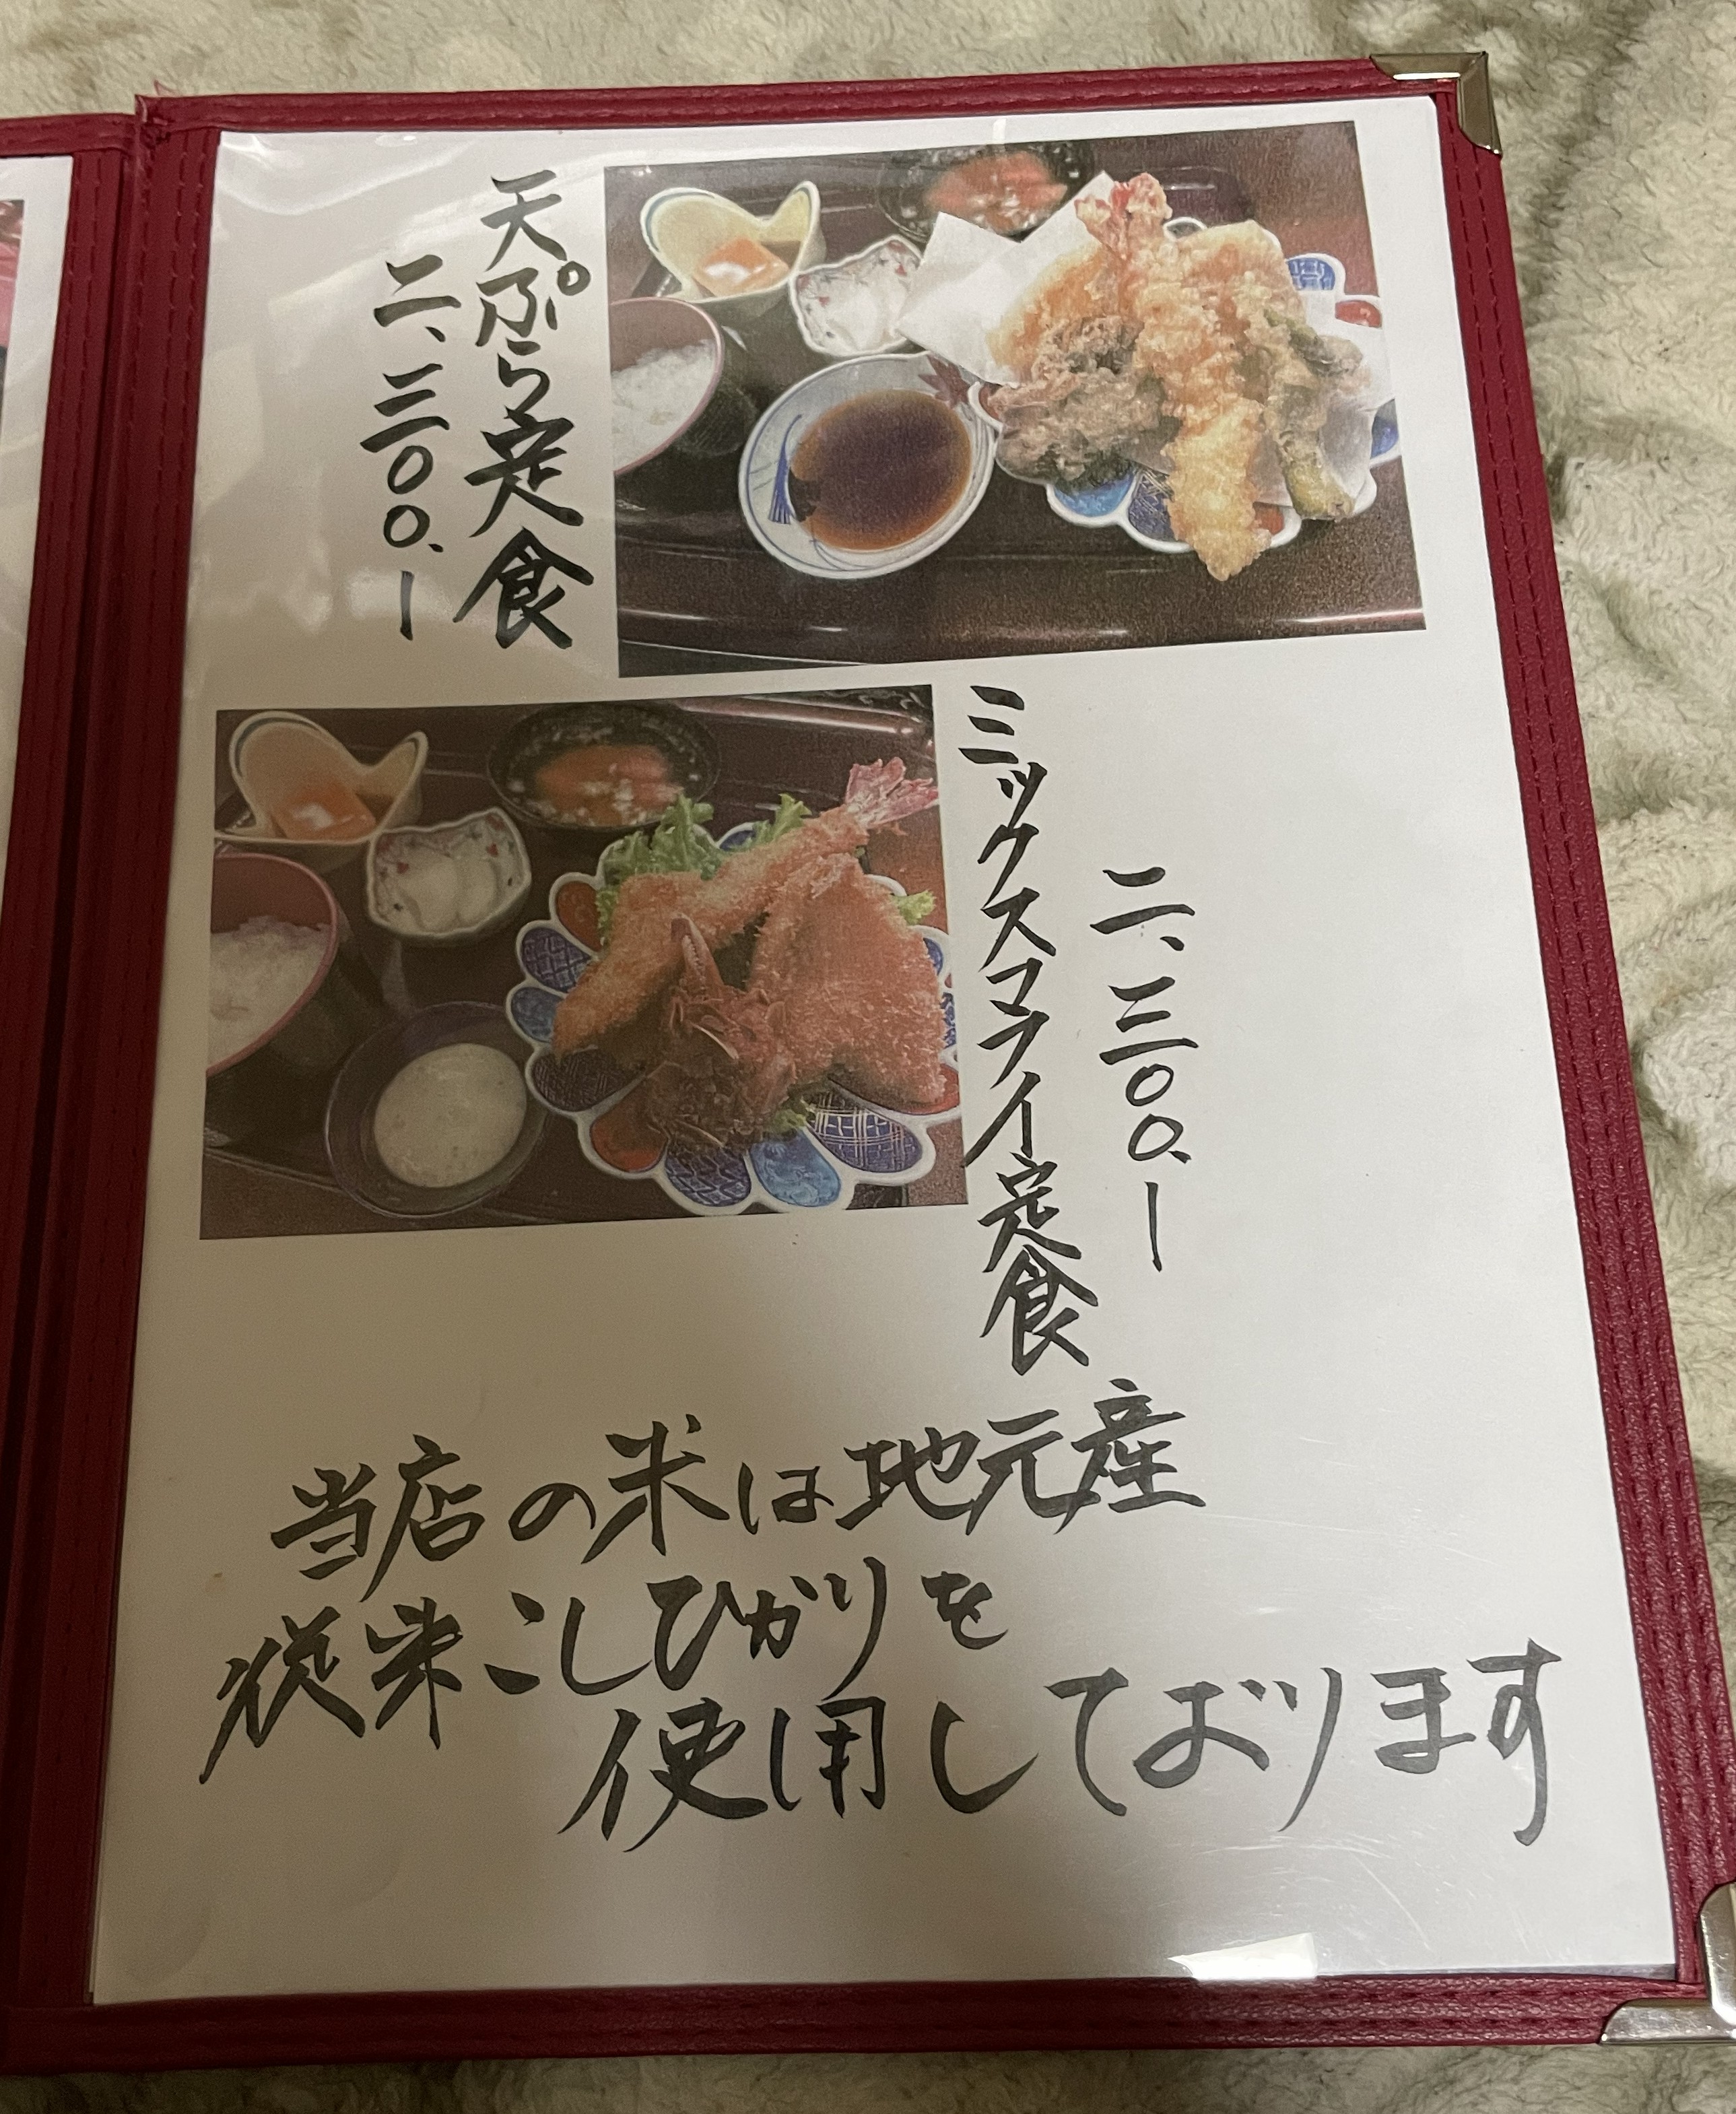 天ぷら定食
二、三〇〇.ー
二、三〇〇.ー
ミックスフライ定食
当店の米は地元産
従来こしひかりを
使用しております